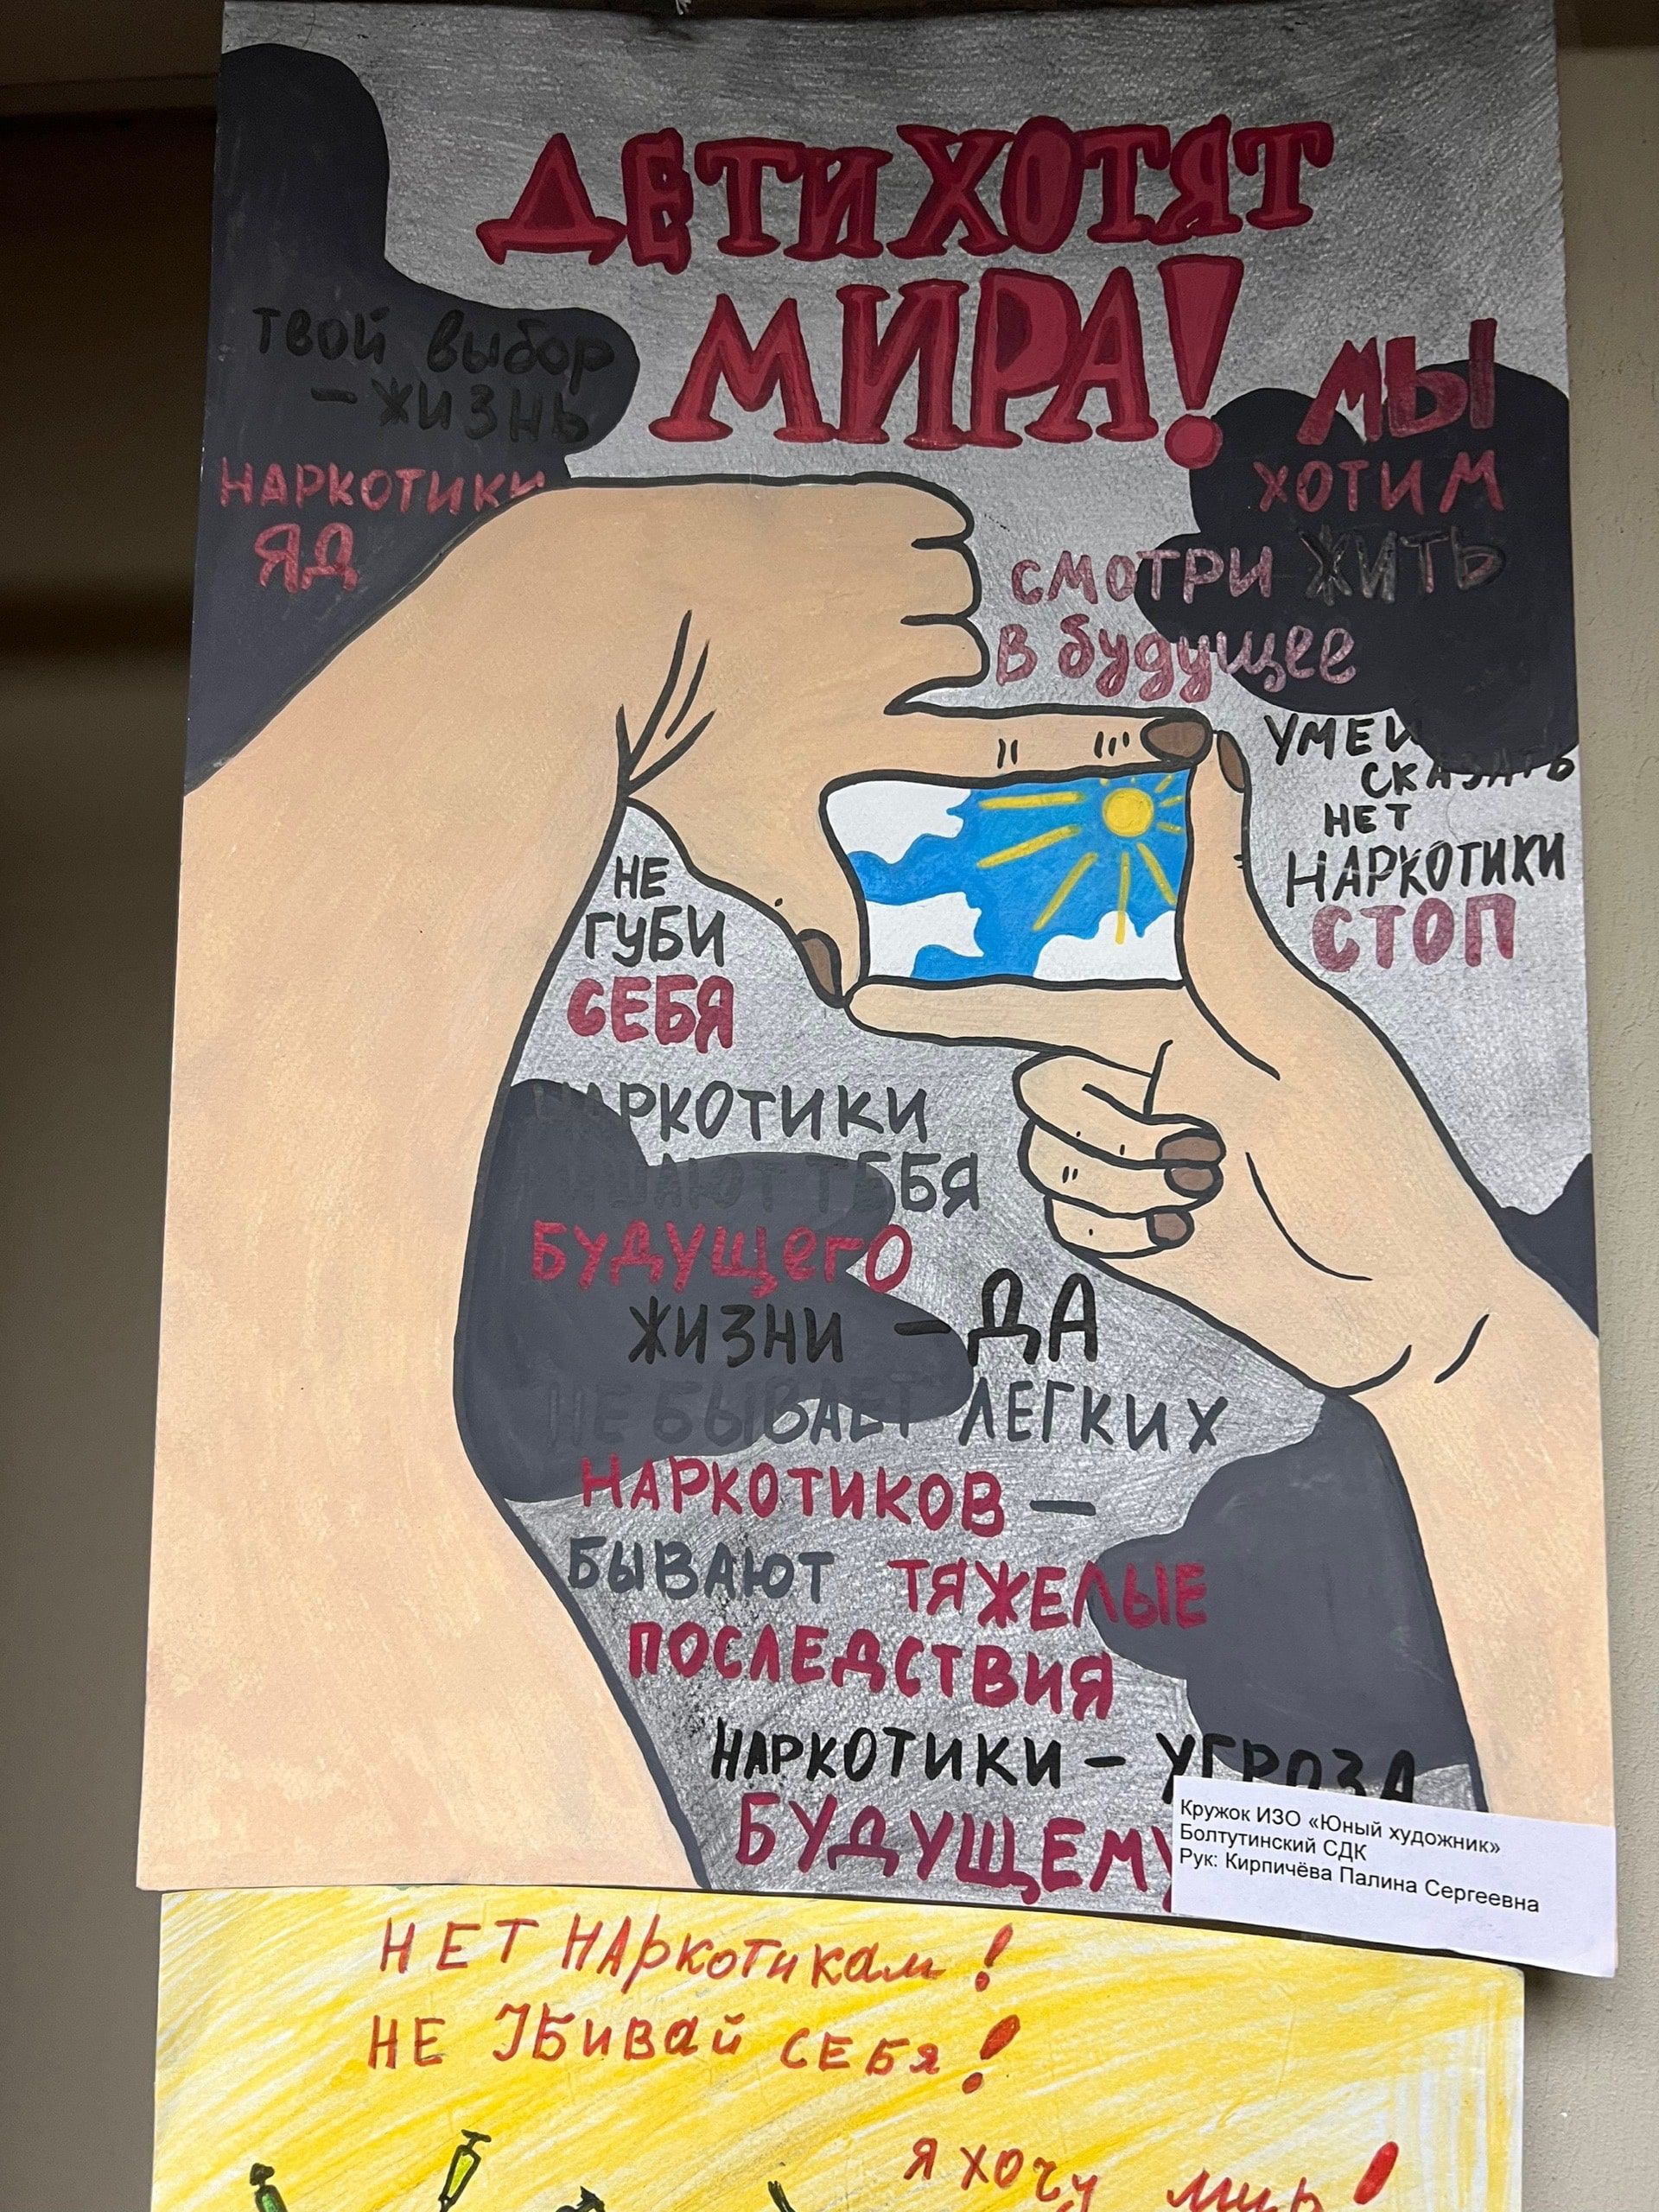 ДЕТИ ХОТЯТ
МИРА!
твой выбор
- жизнь
НАРКОТИКИ
ЯД
МЫ
ХОТИМ
ЖИТЬ
СМОТРИ
В будущее
УМЕЙ
СКАЗАТЬ
НЕТ
НАРКОТИКИ
СТОП
НЕ
ГУБИ
СЕБЯ
НАРКОТИКИ
ТЕБЯ
БУДУЩЕГО
ЖИЗНИ - ДА
НЕ БЫВАЕТ ЛЕГКИХ
НАРКОТИКОВ -
БЫВАЮТ ТЯЖЕЛЫЕ
ПОСЛЕДСТВИЯ
НАРКОТИКИ - УГРОЗА
БУДУЩЕМУ
Кружок ИЗО «Юный художник»
Болтутинский СДК
Рук: Кирпичёва Палина Сергеевна
НЕТ НАРКОТИКАМ!
НЕ УБИВАЙ СЕБЯ!
Я ХОЧУ МИР!